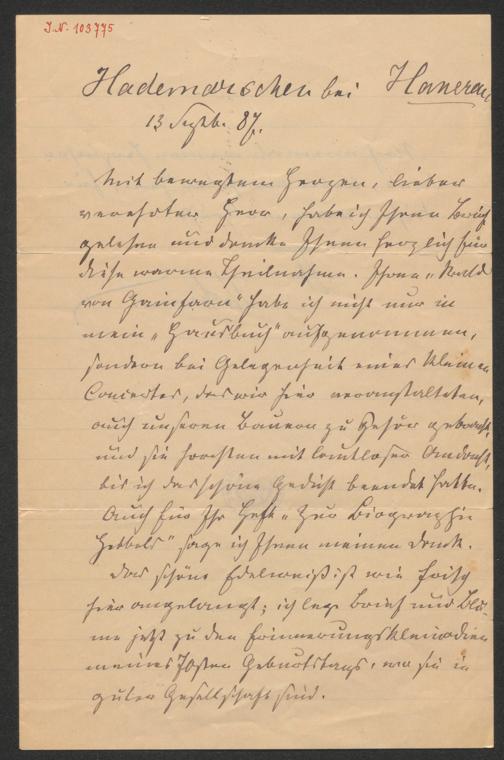 J.N. 103775
Hademarschen bei Hanerau
13 Septbr. 87.
Mit bewegtem Herzen, lieber
verehrter Herr, habe ich Ihren Brief
gelesen und danke Ihnen herzlich für
diese warme Theilnahme. Ihren „Wald
von Gainfarn“ habe ich nicht nur in
mein „Hausbuch“ aufgenommen,
sondern bei Gelegenheit eines kleinen
Concertes, das wir hier veranstalteten,
auch unseren Bauern zu Gehör gebracht,
und sie horchten mit lautloser Andacht,
bis ich das schöne Gedicht beendet hatte.
Auch für Ihr Heft „Zur Biographie
Hebbels“ sage ich Ihnen meinen Dank.
Das schöne Edelweiß ist wie frisch
hier angelangt; ich lege Brief und Blu-
me jetzt zu den Erinnerungskleinodien
meines 70sten Geburtstags, wo sie in
guter Gesellschaft sind.